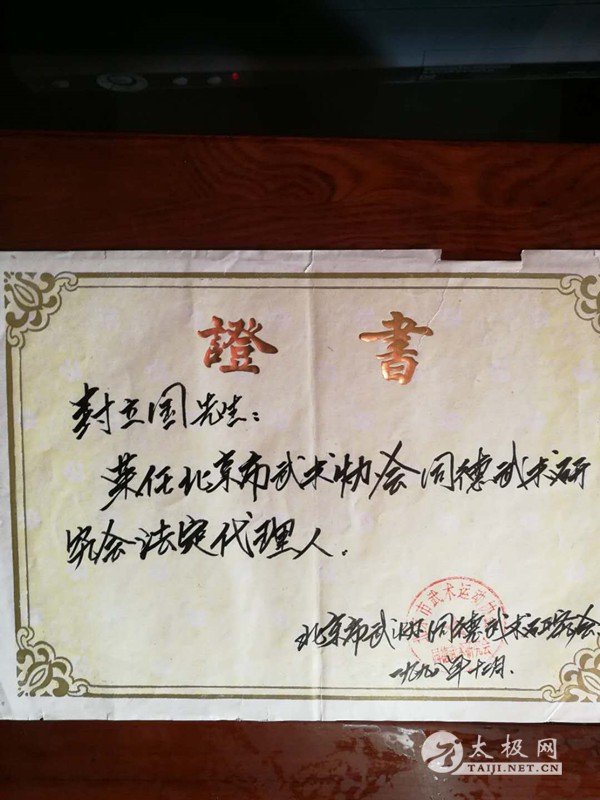 證 書
封立国先生:
荣任北京市武术协会同德武术研
究会法定代理人.
市武术运动
北京市武协同德武术研究会.
一九九〇年十二月.
太极网
TAIJI.NET.CN